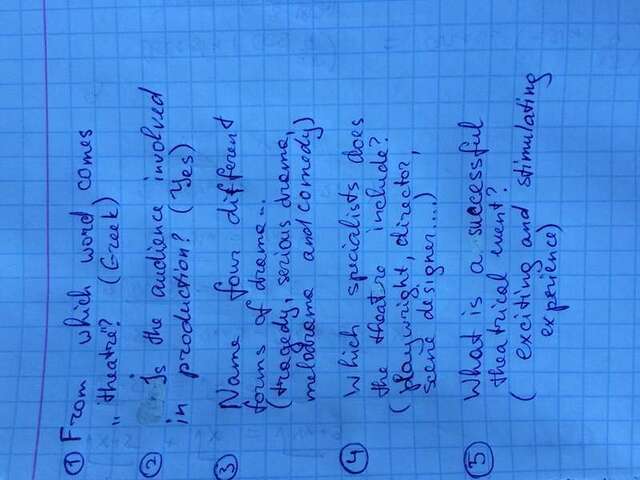 ① From which word comes
„theatre"? (Greek)
② Is the audience involved
in production? (Yes)
③ Name four different
forms of drama...
(tragedy, serious drama,
melodrama and comedy)
④ Which specialists does
the theatre include?
(playwright, director,
scene designer....)
⑤ What is a successful
theatrical event?
( exciting and stimulating
experience)